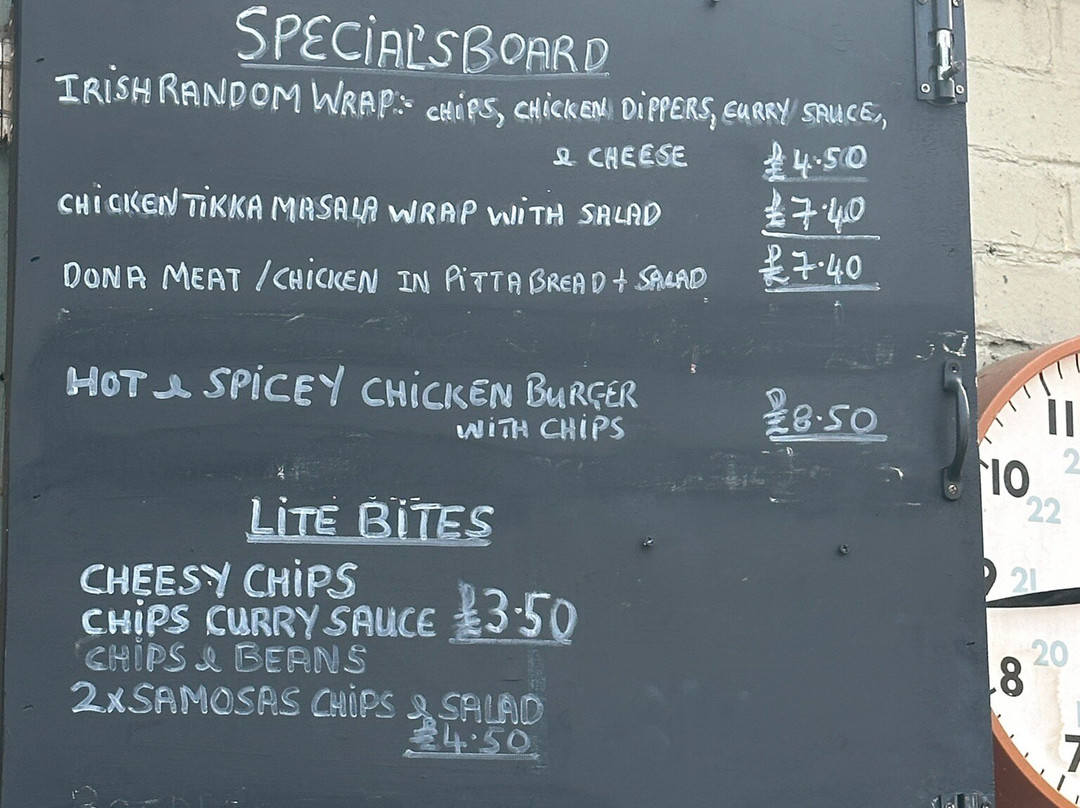 SPECIAL'S BOARD
IRISH RANDOM WRAP:- CHIPS, CHICKEN DIPPERS, CURRY SAUCE,
& CHEESE £4.50
CHICKEN TIKKA MASALA WRAP WITH SALAD £7.40
DONA MEAT / CHICKEN IN PITTA BREAD + SALAD £7.40
HOT & SPICEY CHICKEN BURGER
WITH CHIPS £8.50
LITE BITES
CHEESY CHIPS
CHIPS CURRY SAUCE £3.50
CHIPS & BEANS
2x SAMOSAS CHIPS & SALAD
£4.50
11
10
22
9 21
20
8
7